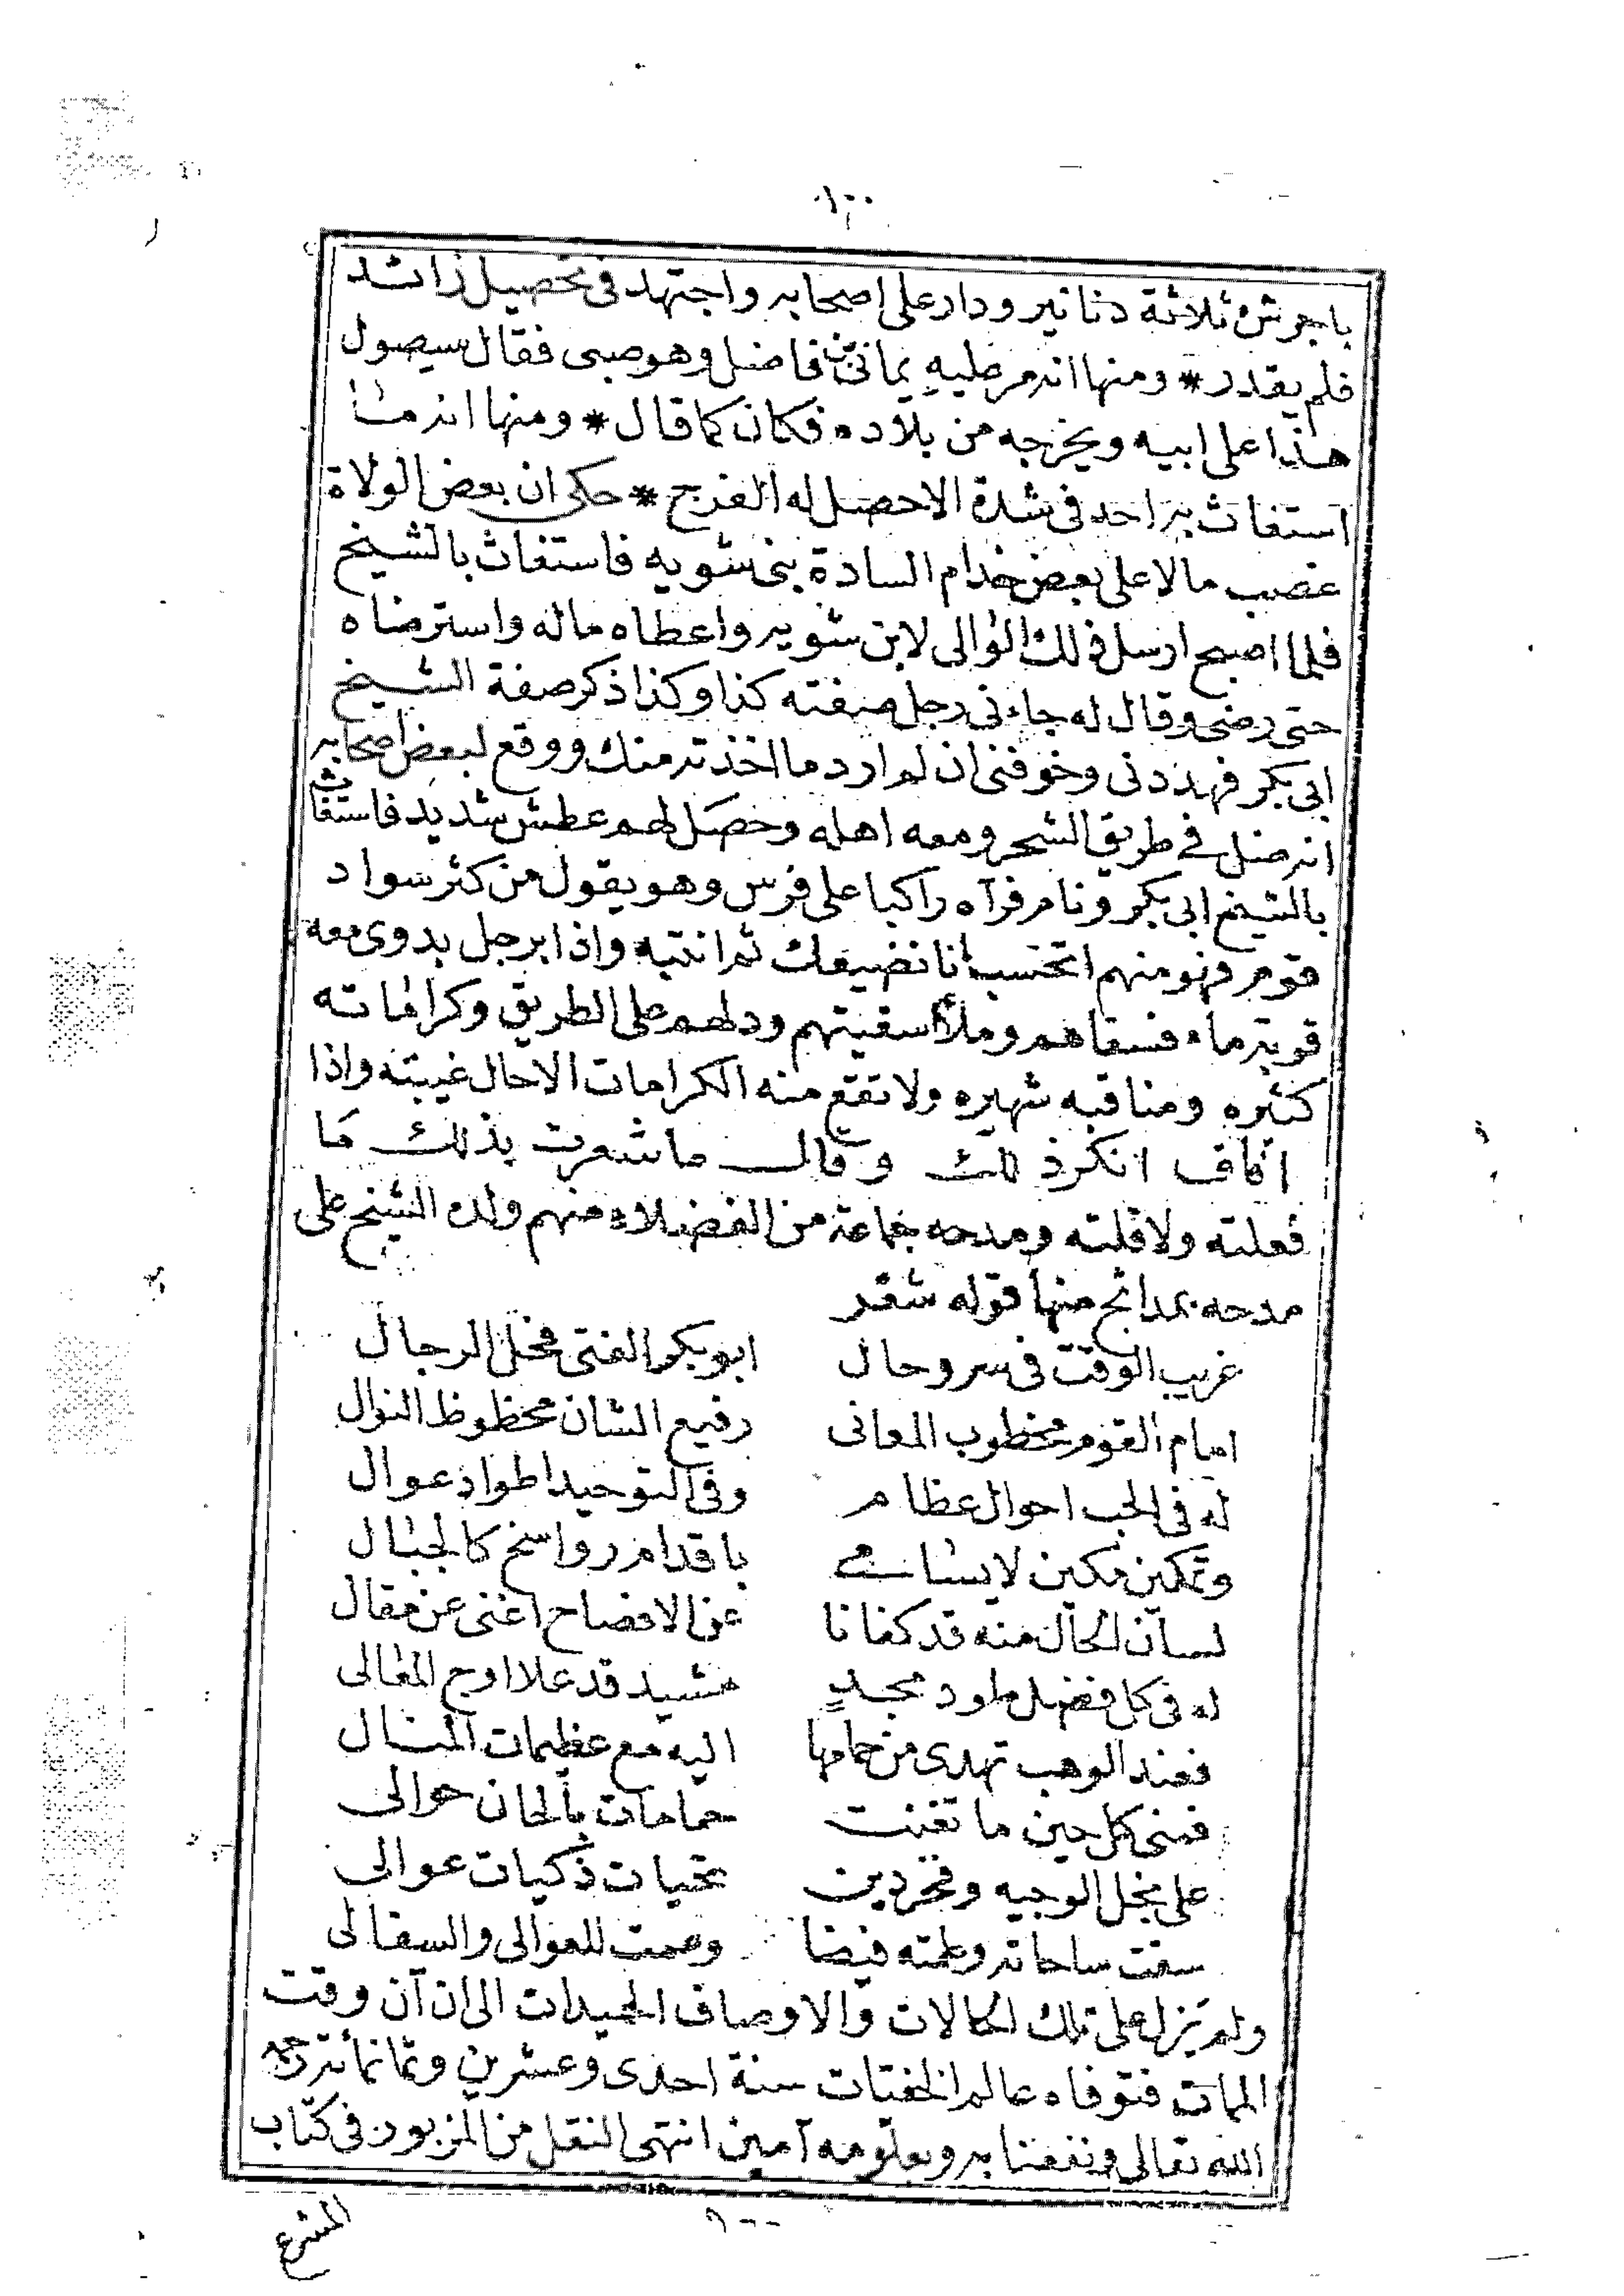 ١٠٠
باجرش ثلاثة دنانير ودار على اصحابه واجتهد فى تحصيل زائد
فلم يقدر * ومنها انه مر عليه يمانى فاضل وهو صبى فقال سيصول
هذا على ابيه ويخرجه من بلاده فكان كما قال * ومنها انه ما
استغاث به احد فى شدة الا حصل له الفرج * حكى ان بعض الولاة
غصب مالا على بعض خدام السادة بنى شويه فاستغاث بالشيخ
فلما اصبح ارسل ذلك الوالى لابن شويه واعطاه ماله واسترضاه
حتى رضى وقال له جاءنى رجل صفته كذا وكذا ذكر صفة الشيخ
ابى بكر فهددنى وخوفنى ان لم ارد ما اخذته منك ووقع لبعض اصحابه
انه ضل فى طريق الشحر ومعه اهله وحصل لهم عطش شديد فاستغاث
بالشيخ ابى بكر ونام فرآه راكبا على فرس وهو يقول من كثر سواد
قوم فهو منهم اتحسب انا نضيعك ثم انتبه واذا برجل بدوى معه
قربة ماء فسقاهم وملأ اسقيتهم ودلهم على الطريق وكراماته
كثيره ومناقبه شهيره ولا تقع منه الكرامات الا حال غيبته واذا
افاق انكر ذلك وقال ما شعرت بذلك ما
فعلته ولا قلته ومدحه جماعة من الفضلاء منهم ولده الشيخ على
مدحه بمدائح منها قوله شعر
غريب الوقت فى سر وحال ابو بكر الفتى فحل الرجال
امام القوم مخطوب المعانى رفيع الشان محظوظ النوال
له فى الحب احوال عظام وفى التوحيد اطواد عوال
وتمكين مكين لا يسامى باقدام رواسخ كالجبال
لسان الحال منه قد كفانا عن الافصاح اغنى عن مقال
له فى كل فضل طود مجد مشيد قد علا اوج المعالى
فعند الوهب تهدى من حماها اليه مع عظيمات المنال
فمنى كل حين ما تغنت حمامات بألحان حوالى
على نجل الوجيه وفخر دين تحيات ذكيات عوالى
سقت ساحاته وعلته فيضا وعمت للعوالى والسفالى
ولم يزل على تلك الكمالات والاوصاف الحميدات الى ان آن وقت
الممات فتوفاه عالم الخفيات سنة احدى وعشرين وثمانمائة رحمه
الله تعالى ونفعنا به وبعلومه آمين انتهى النقل من المزبور فى كتاب
المشرع